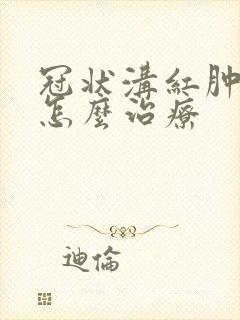 冠状溝紅肿
怎麼治療
迪倫